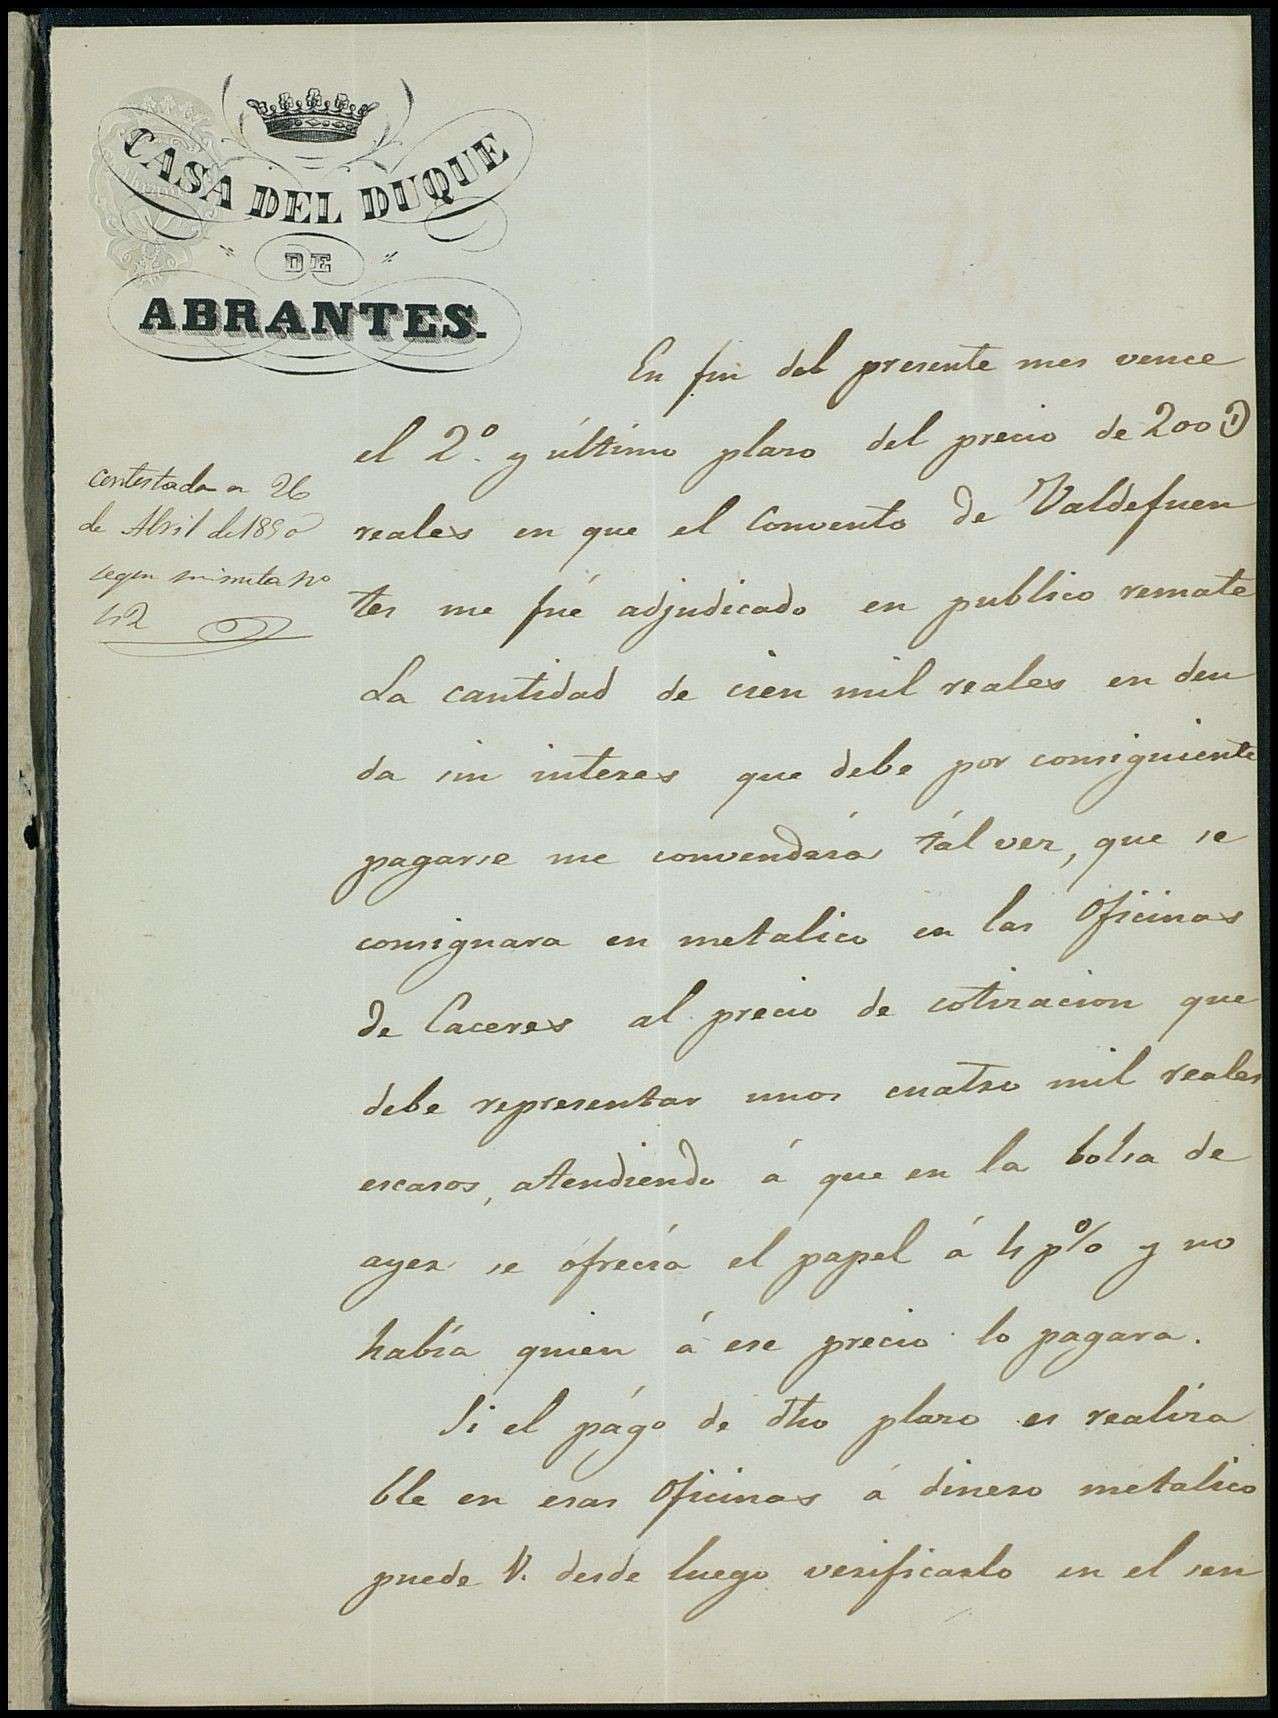 CASA DEL DUQUE
DE
ABRANTES.
contestada en 26
de Abril de 1850
segun minuta nº
42
En fin del presente mes vence
el 2º y último plazo del precio de 200
reales en que el Convento de Valdefuen
tes me fué adjudicado en publico remate
La cantidad de cien mil reales en deu
da sin interes que debe por consiguiente
pagarse me convendria tál vez, que se
consignara en metalico en las Oficinas
de Caceres al precio de cotizacion que
debe representar unos cuatro mil reales
escasos, atendiendo á que en la bolsa de
ayer se ofrecia el papel á 4 p% y no
había quien á ese precio lo pagara.
Si el págo de dho plazo es realiza
ble en esas Oficinas á dinero metalico
puede V. desde luego verificarlo en el sen